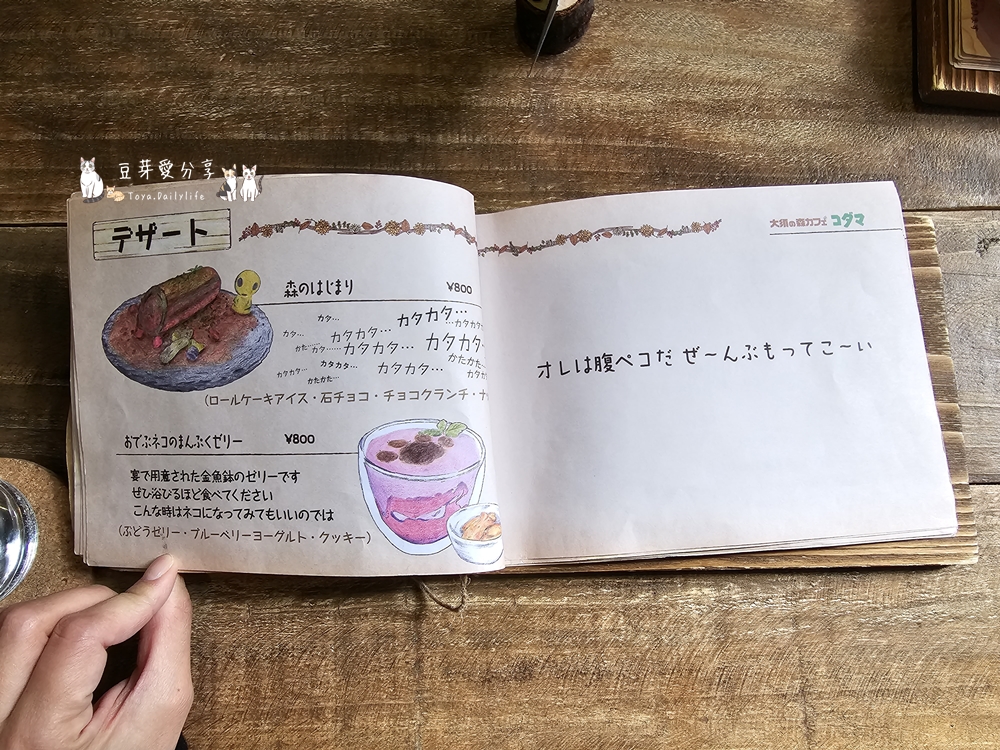 豆芽愛分享
Toya.Dailylife
デザート
森のはじまり ¥800
カタ… カタカタ… …カタカタ
カタ… カタカタ… カタカタ
かた…… カタ…… カタカタ… かたかた
カタカタ… カタカタ… カタカタ… カタカ
かたかた…
(ロールケーキアイス・石チョコ・チョコクランチ・ナ
おでぶネコのまんぷくゼリー ¥800
宴で用意された金魚鉢のゼリーです
ぜひ浴びるほど食べてください
こんな時はネコになってみてもいいのでは
(ぶどうゼリー・ブルーベリーヨーグルト・クッキー)
大須の森カフェ コダマ
オレは腹ペコだ ぜ〜んぶもってこ〜い